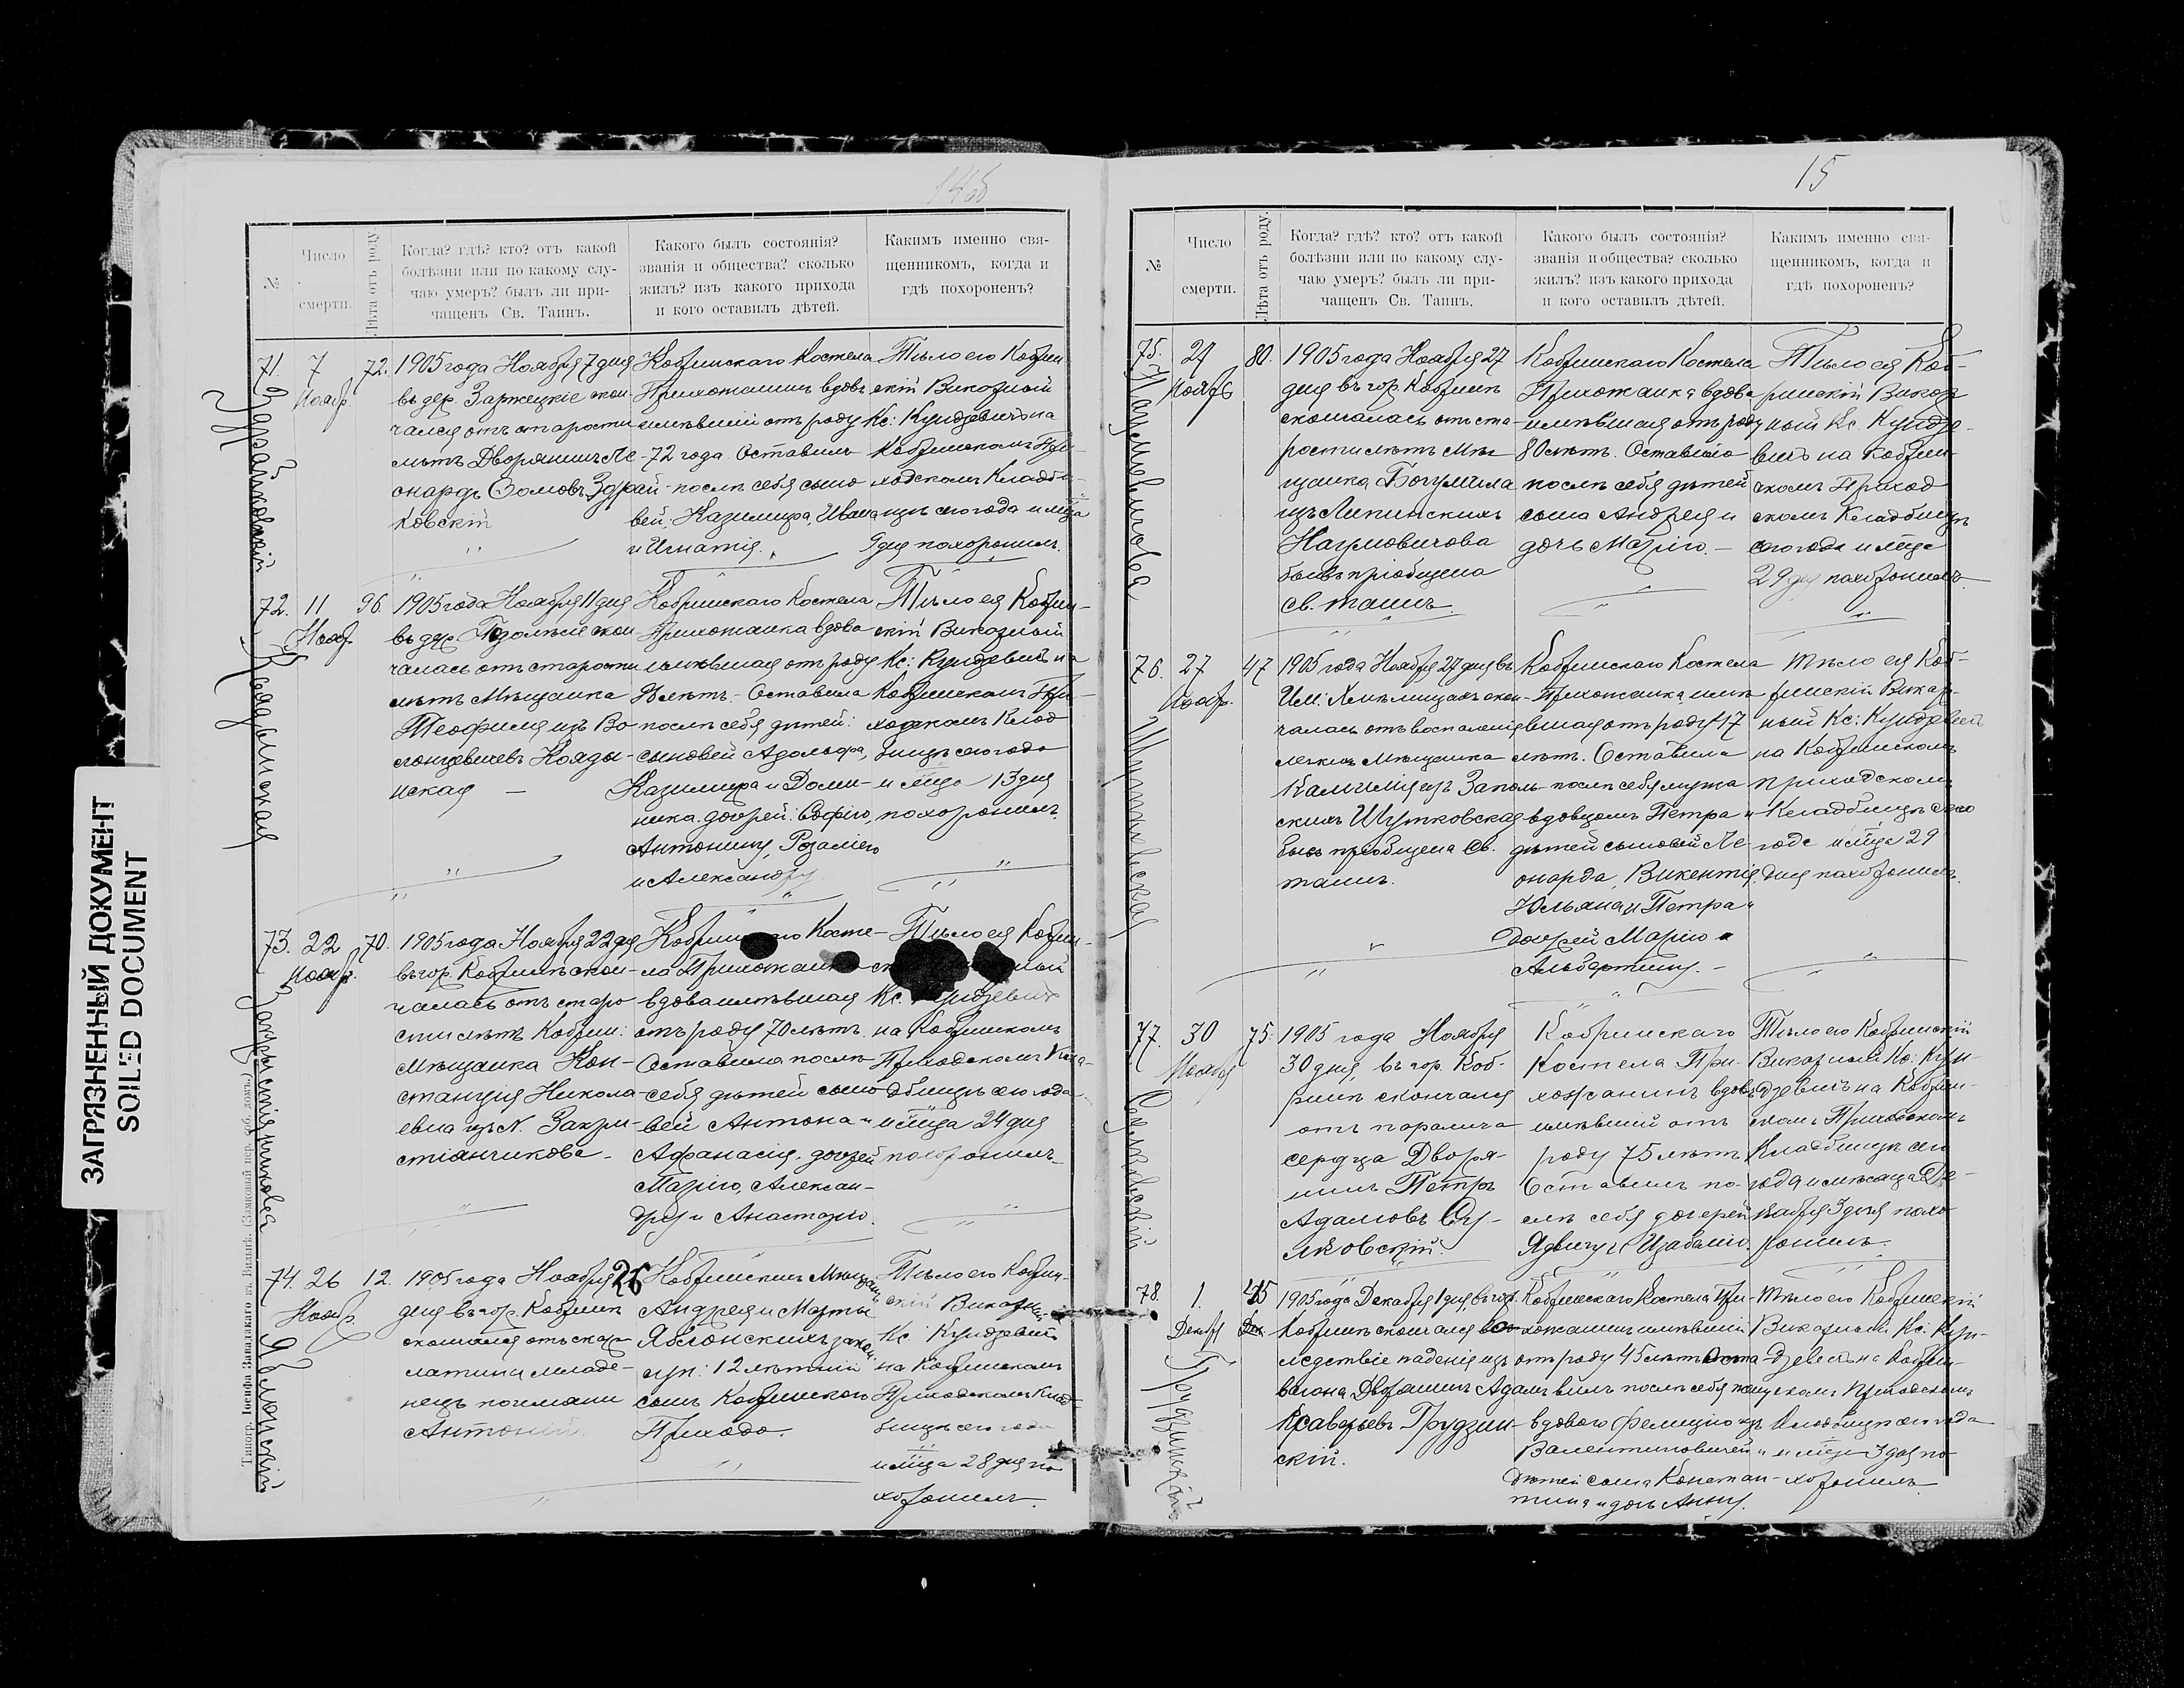 15
№
Число смерти.
Лѣта отъ роду.
Когда? гдѣ? кто? отъ какой
болѣзни или по какому слу-
чаю умеръ? былъ ли при-
чащенъ Св. Таинъ.
Какого былъ состоянія?
званія и общества? сколько
жилъ? изъ какого прихода
и кого оставилъ дѣтей.
Какимъ именно свя-
щенникомъ, когда и
гдѣ похороненъ?
71.
7
Ноябр.
72.
1905 года Ноября 7 дня
въ дер. Заржецкіе скон
чался отъ старости
лѣтъ Дворянинъ Ле-
онардъ Сомовъ Здрай-
ковскій
Кобринскаго Костела
Прихожанинъ вдовъ
имѣвшій отъ роду
72 года. Оставилъ
послѣ себя сыно
вей, Казимира, Ивана
и Игнатія.
Тѣло его Кобрин
скій Викарный
Кс: Кундзевичъ на
Кобринскомъ При-
ходскомъ Кладби-
щѣ сего года и м-ца
9 дня похоронилъ.
Здрайковскій
72.
11
Нояб.
96.
1905 года Ноября 11 дня
въ дер. скон
чалась отъ старости
лѣтъ Мѣщанка
Теофиля изъ Во
лонцевичевъ Коляды-
нская
Кобринскаго Костела
Прихожанка вдова
имѣвшая отъ роду
лѣтъ. Оставила
послѣ себя дѣтей:
сыновей Адольфа,
Казимира и Доми-
ника. дочерей: Софію,
Антонину, Розалію
и Александру
Тѣло ея Кобрин-
скій Викарный
Кс: Кундзевичъ на
Кобринскомъ При-
ходскомъ Клад
бищѣ сего года
и м-ца 13 дня
похоронилъ.
73.
22
Нояб.
70.
1905 года Ноября 22 дня
въ гор. Кобринѣ скон-
чалась отъ старо
сти лѣтъ Кобрин:
Мѣщанка Кон-
станція Никола-
евна изъ N. Закри-
стіянчикова
Кобринскаго Косте-
ла Прихожанка
вдова имѣвшая
отъ роду 70 лѣтъ.
Оставила послѣ
себя дѣтей сыно
вей Антона и
Афанасія. дочерей
Марію, Алексан-
дру и Анастазію.
Тѣло ея Кобрин-
Кс. Кундзевичъ
на Кобринскомъ
Приходскомъ Кла-
дбищѣ сего года
и м-ца 24 дня
похоронилъ
Закристіянчикова
74.
26
Ноябр.
12.
1905 года Ноября 26
дня въ гор. Кобринѣ
скончался отъ скар
латины младе-
нецъ по имени
Антоній.
Кобринскихъ Мѣщанъ
Андрея и Марты
Яблонскихъ закон.
суп: 12 лѣтній
сынъ Кобринскаго
Прихода
Тѣло его Кобрин-
скій Викарный
Кс. Кундзевичъ
на Кобринскомъ
Приходскомъ Клад-
бищѣ сего года
и м-ца 28 дня по
хоронилъ.
Яблонскій
Типогр. Іосифа Завадзкаго въ Вильнѣ.
ЗАГРЯЗНЕННЫЙ ДОКУМЕНТ
SOILED DOCUMENT
№
Число смерти.
Лѣта отъ роду.
Когда? гдѣ? кто? отъ какой
болѣзни или по какому слу-
чаю умеръ? былъ ли при-
чащенъ Св. Таинъ.
Какого былъ состоянія?
званія и общества? сколько
жилъ? изъ какого прихода
и кого оставилъ дѣтей.
Какимъ именно свя-
щенникомъ, когда и
гдѣ похороненъ?
75.
27
Нояб
80.
1905 года Ноября 27
дня въ гор. Кобринѣ
скончалась отъ ста-
рости лѣтъ Мѣ
щанка Богумила
изъ Липинскихъ
Нагумовичова
бывъ пріобщена
Св. таинъ.
Кобринскаго Костела
Прихожанка вдова
имѣвшая отъ роду
80 лѣтъ. Оставила
послѣ себя дѣтей
сына Андрея и
дочь Марію.
Тѣло ея Коб-
ринскій Викар
ный Кс. Кундзе-
вичъ на Кобрин-
скомъ Приход
скомъ Кладбищѣ
сего года и м-ца
29 дня похоронилъ
Нагумовичова
76.
27
Нояб.
47
1905 года Ноября 27 дня въ
Им. скон-
чалась отъ воспаленія
легкихъ Мѣщанка
изъ Заполь-
скихъ Шутковская
бывъ пріобщена Св.
таинъ.
Кобринскаго Костела
Прихожанка, имѣ
вшая отъ роду 47
лѣтъ. Оставила
послѣ себя мужа
вдовцомъ Петра и
дѣтей сыновей Ле
онарда, Викентія,
Юльяна и Петра и
дочерей Марію и
Альбертину.
Тѣло ея Коб-
ринскій Викар-
ный Кс: Кундзевичъ
на Кобринскомъ
приходскомъ
Кладбищѣ сего
года и м-ца 29
дня похоронилъ.
Шутковская
77.
30
Ноября
75.
1905 года Ноября
30 дня, въ гор. Коб-
ринѣ скончался
отъ паралича
сердца Дворя-
нинъ Петръ
Адамовъ Су-
лковскій.
Кобринскаго
Костела При-
хожанинъ вдовъ
имѣвшій отъ
роду 75 лѣтъ
Оставилъ по-
слѣ себя дочерей
Ядвигу и Изабелію
Тѣло его Кобринскій
Викарный Кс: Кун-
дзевичъ на Кобрин-
скомъ Приходскомъ
Кладбищѣ сего
года и мѣсяца Де-
кабря 3 дня похо
ронилъ.
78.
1.
Декабр
45
1905 года Декабря 1 дня, въ гор.
Кобринѣ скончался во
лѣдствіе паденія изъ
вагона Дворянинъ Адамъ
Ксаверьевъ Грудзин-
скій.
Кобринскаго Костела При-
хожанинъ имѣвшій
отъ роду 45 лѣтъ Оста
вилъ послѣ себя жену
вдовою Фелицію изъ
Валентиновичей и
дѣтей сына Констан-
тина и дочь Анну.
Тѣло его Кобринскій
Викарный Кс: Кун-
дзевичъ на Кобрин-
скомъ Приходскомъ
Кладбищѣ сего года
и м-ца 3 дня по
хоронилъ
Грудзинскій